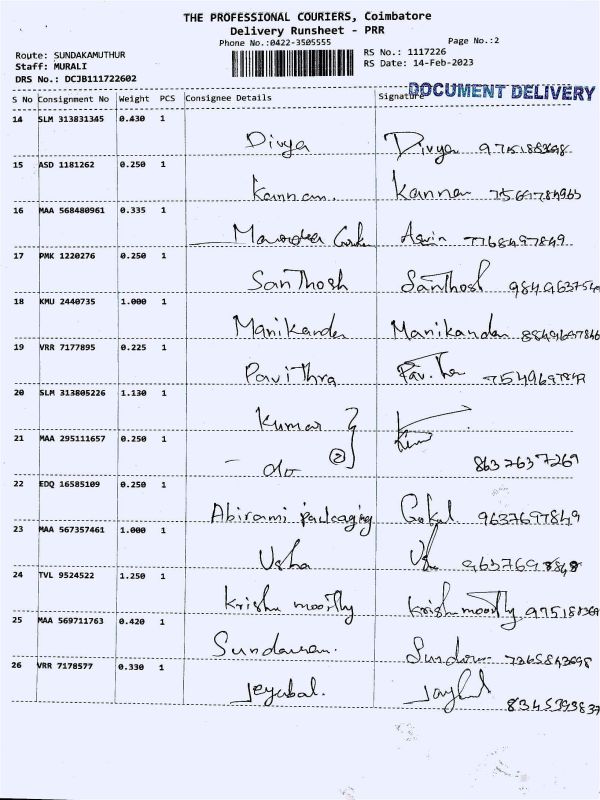 THE PROFESSIONAL COURIERS, Coimbatore
Delivery Runsheet - PRR
Phone No.:0422-3505555
Page No.:2
Route: SUNDAKAMUTHUR
RS No.: 1117226
Staff: MURALI
RS Date: 14-Feb-2023
DRS No.: DCJB111722602
DOCUMENT DELIVERY
S No Consignment No Weight PCS Consignee Details Signature
14 SLM 313831345 0.430 1
Divya Divya
15 ASD 1181262 0.250 1
Kannan. Kannan
16 MAA 568480961 0.335 1
7768497849
17 PMK 1220276 0.250 1
Santhosh Santhosh
18 KMU 2440735 1.000 1
Manikanda Manikandan
19 VRR 7177895 0.225 1
Pavithra 7549697849
20 SLM 313805226 1.130 1
Kumar
21 MAA 295111657 0.250 1
- do 2 8637637269
22 EDQ 16585109 0.250 1
Abirami packaging Gokul 9637697849
23 MAA 567357461 1.000 1
Usha
24 TVL 9524522 1.250 1
Krishn moorthy Krishn moorthy
25 MAA 569711763 0.420 1
Sundaram.
26 VRR 7178577 0.330 1
Jeyabal.